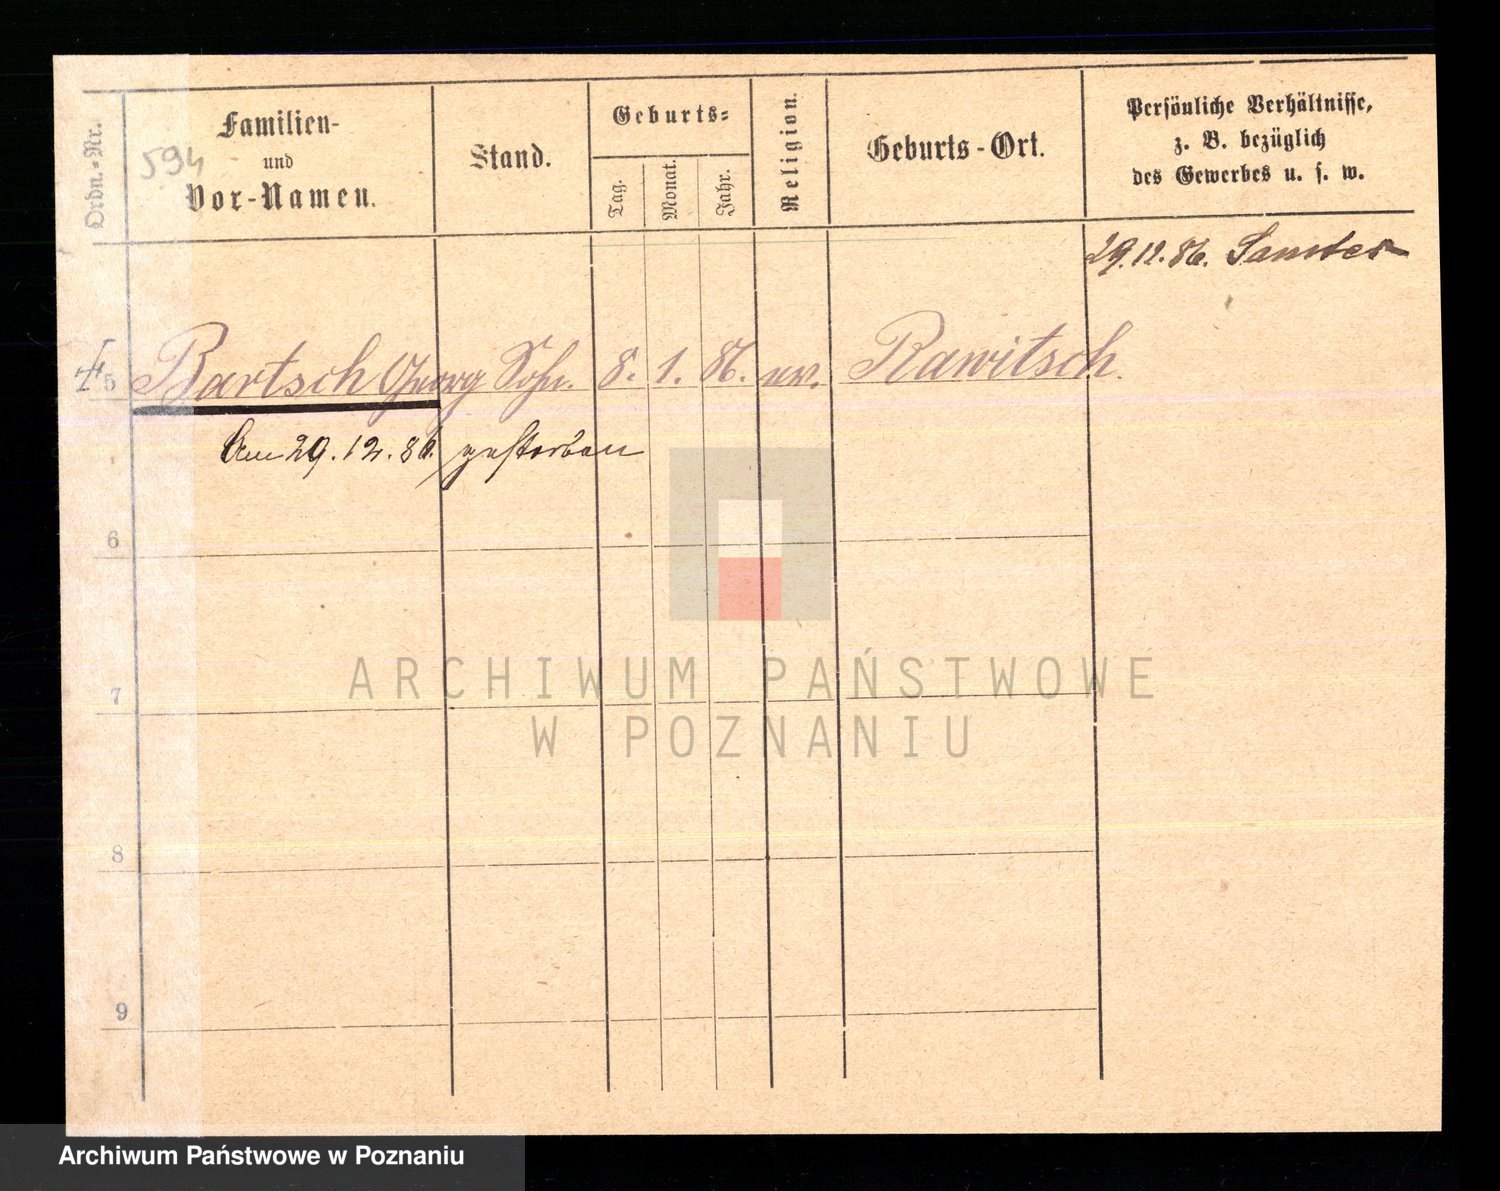 Ordn.-Nr.
594
Familien-
und
Vor-Namen.
Stand.
Geburts-
Tag.
Monat.
Jahr.
Religion.
Geburts-Ort.
Persönliche Verhältnisse,
z. B. bezüglich
des Gewerbes u. s. w.
29.12.86. Samter
5 Bartsch Georg Sohn. 8. 1. 86. ev. Rawitsch.
Am 29.12.86. gestorben
6
7
8
9
ARCHIWUM PAŃSTWOWE
W POZNANIU
Archiwum Państwowe w Poznaniu